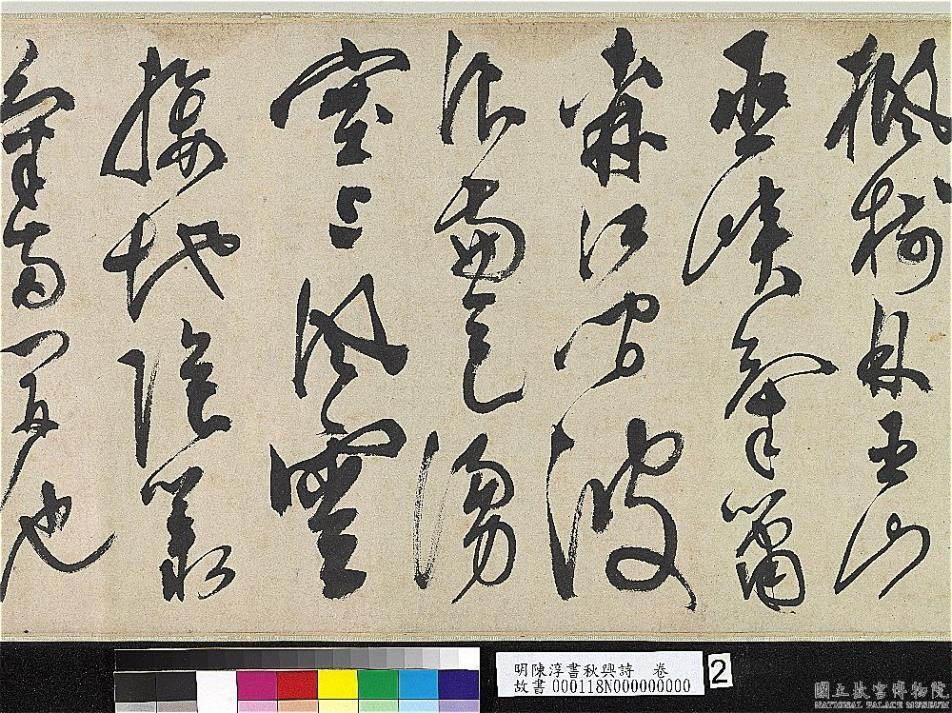 楓樹林巫山
巫峽氣蕭
森江間波
浪兼天湧
塞上風雲
接地陰叢
菊兩開他
明陳淳書秋興詩 卷
故書 000118N000000000
2
國立故宮博物院
NATIONAL PALACE MUSEUM